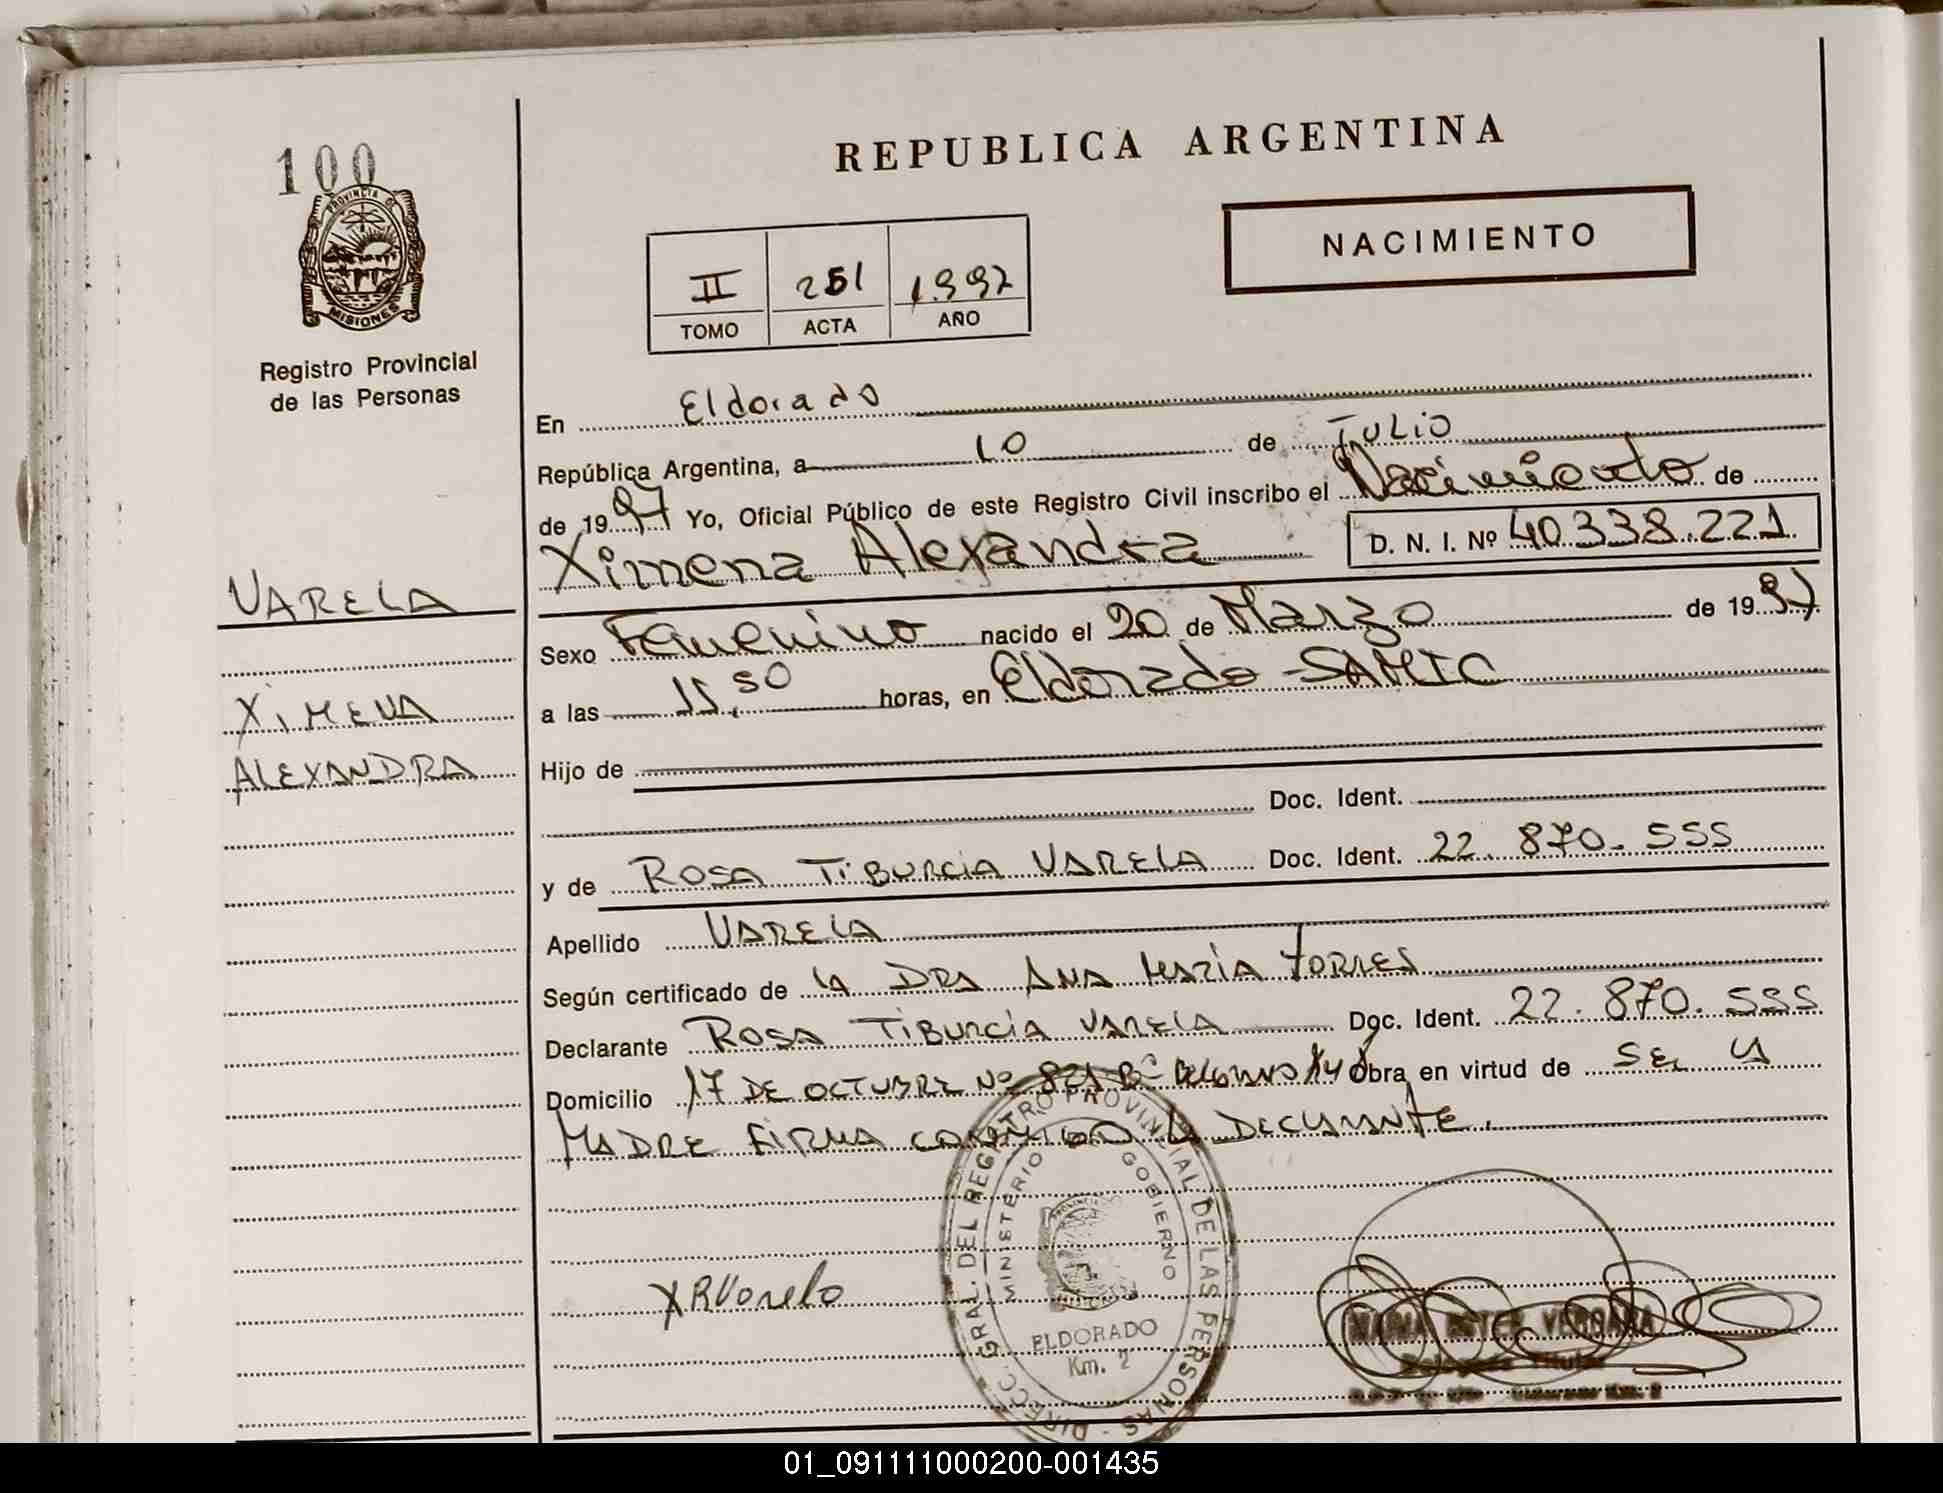 100
PROVINCIA DE
MISIONES
Registro Provincial
de las Personas
REPUBLICA ARGENTINA
NACIMIENTO
II 251 1997
TOMO ACTA AÑO
En Eldorado
República Argentina, a 10 de JULIO
de 1997 Yo, Oficial Público de este Registro Civil inscribo el Nacimiento de
Ximena Alexandra D. N. I. Nº 40.338.221
VARELA
Sexo Femenino nacido el 20 de Marzo de 1997
a las 11,50 horas, en Eldorado - SAMIC
XIMENA
ALEXANDRA
Hijo de
Doc. Ident.
y de ROSA TIBURCIA VARELA Doc. Ident. 22.870.555
Apellido VARELA
Según certificado de LA DRA ANA MARÍA TORRES
Declarante ROSA TIBURCIA VARELA Doc. Ident. 22.870.555
Domicilio 17 DE OCTUBRE Nº 821 Bº Obra en virtud de SER LA
MADRE FIRMA CONMIGO LA DECLARANTE.
DIRECC. GRAL. DEL REGISTRO PROVINCIAL DE LAS PERSONAS -
MINISTERIO GOBIERNO
ELDORADO
Km. 2
X RVarela
MARIA ESTER VERGARA
Titular
01_091111000200-001435